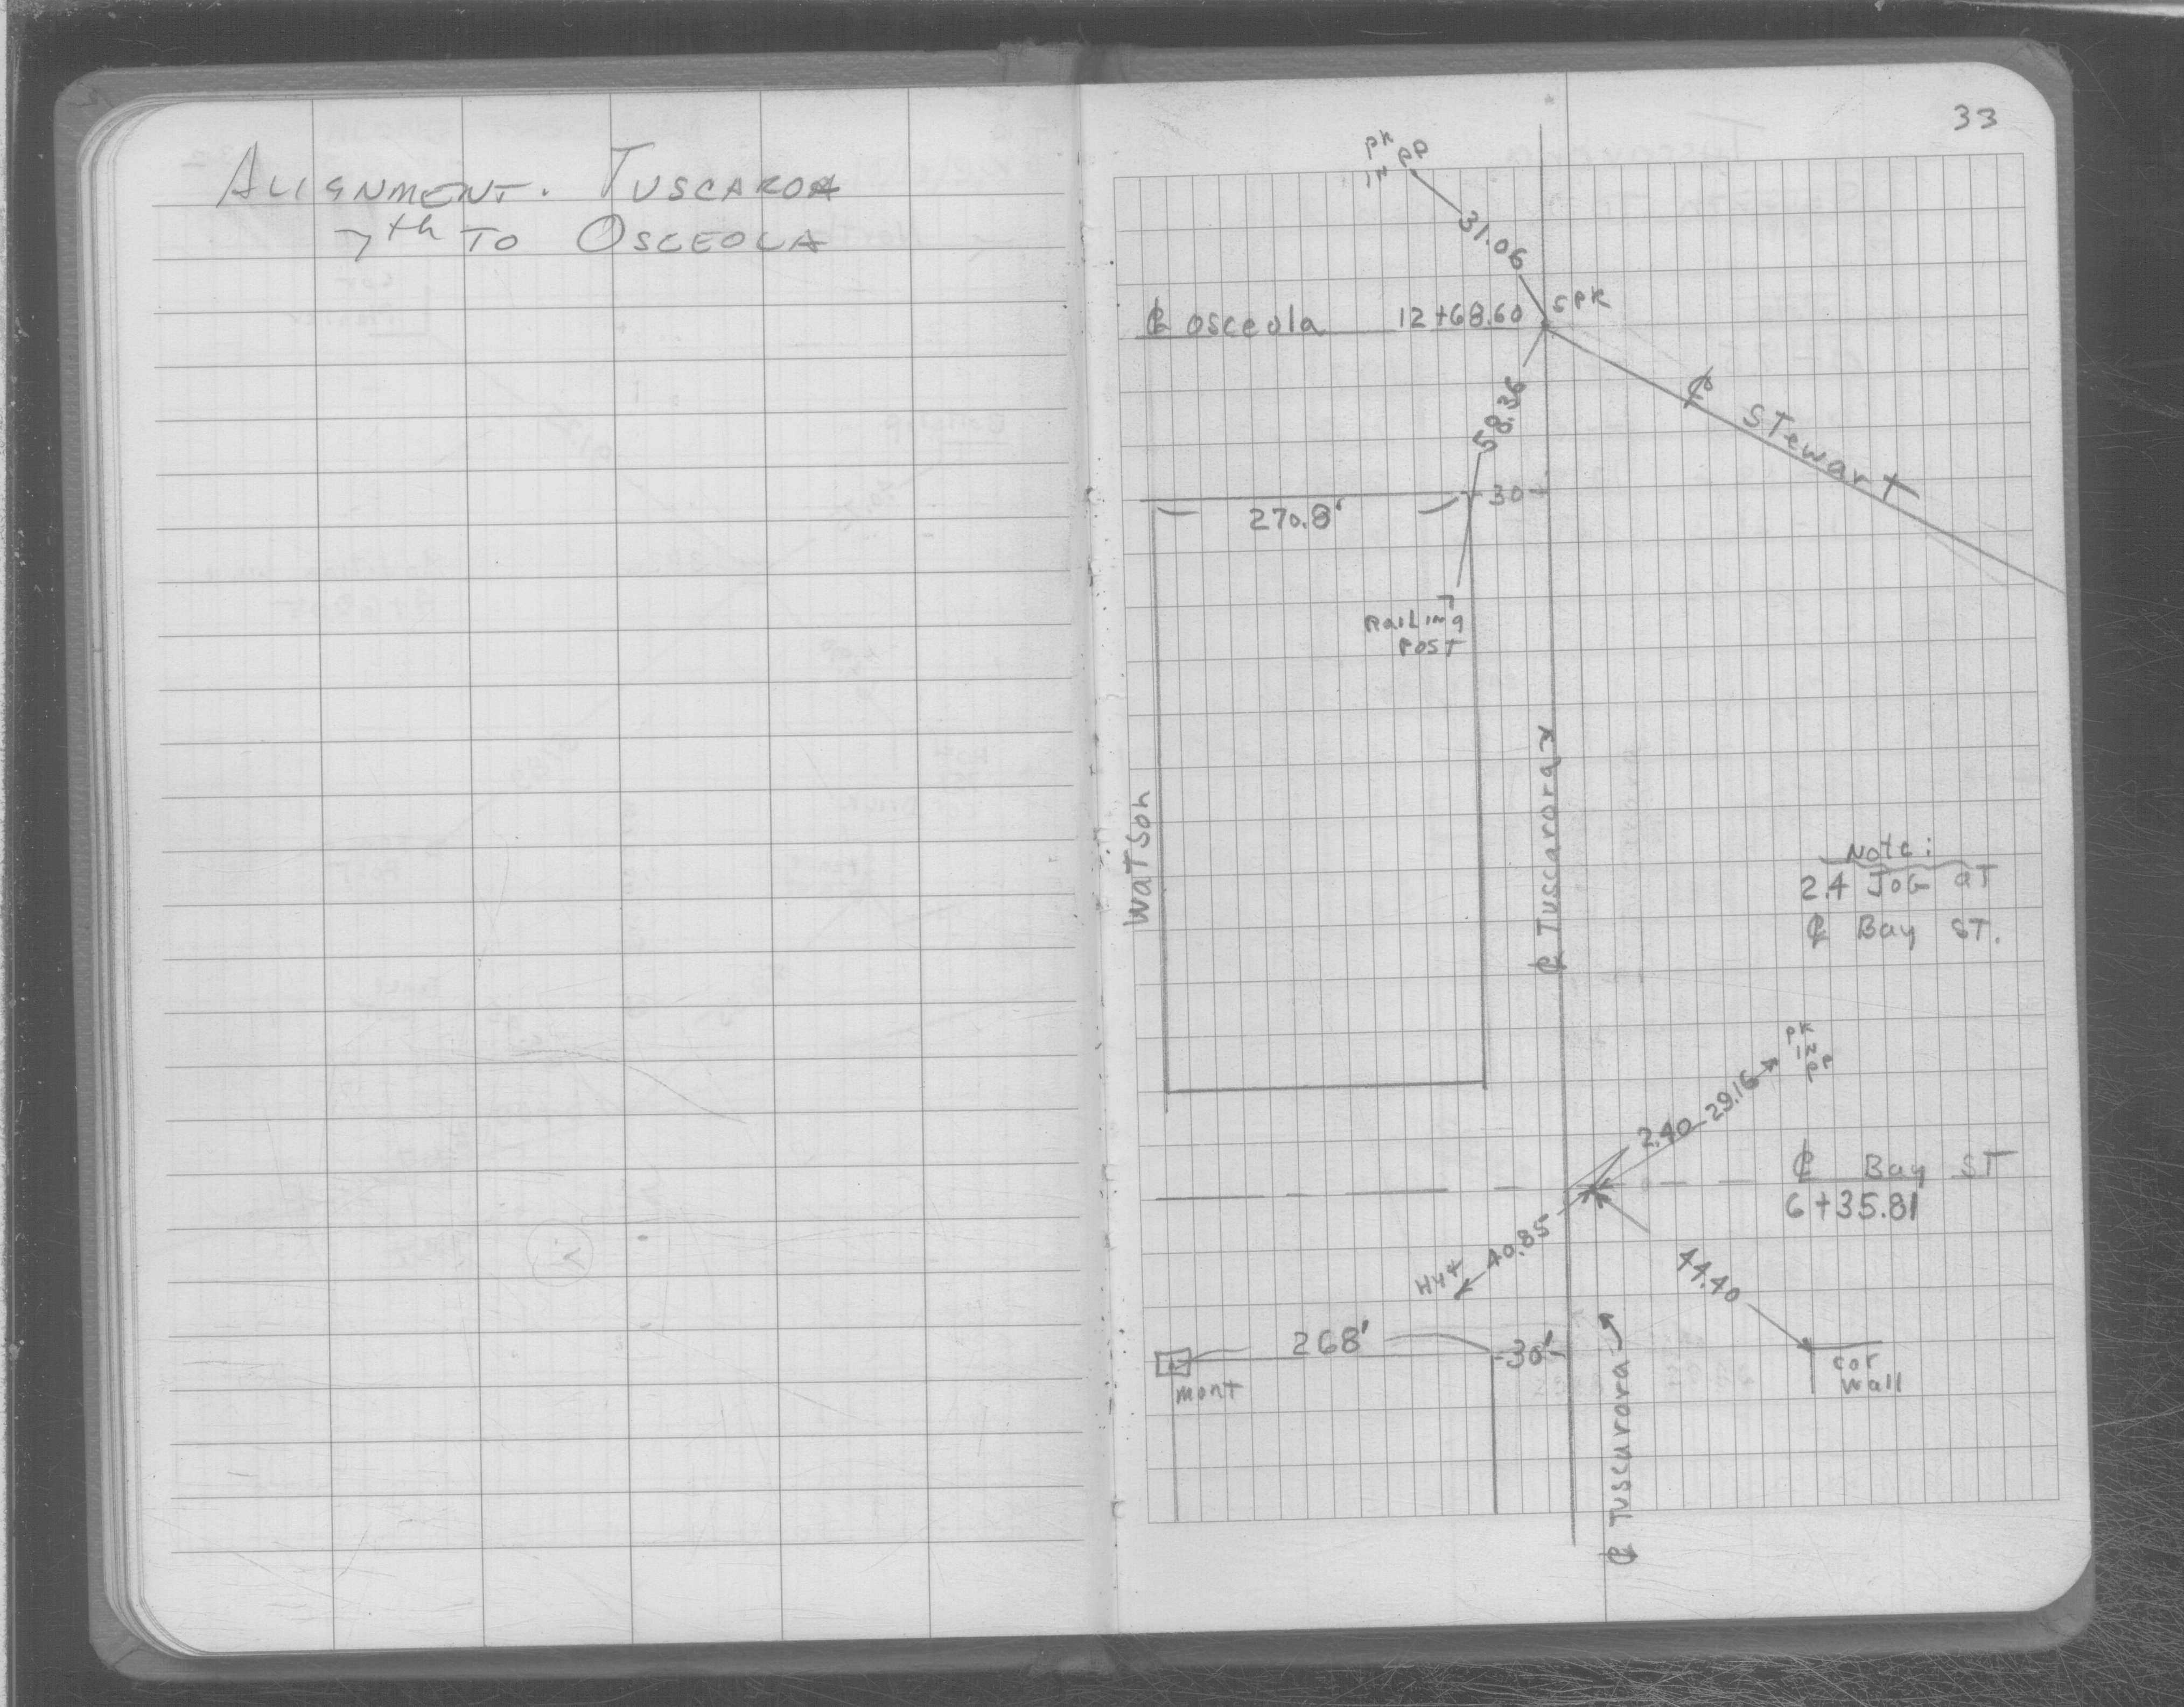 ALIGNMENT. TUSCAROA
7th TO OSCEOLA
33
PK
IN PP
31.06
℄ osceola 12+68.60
SPK
58.36
℄ STewarT
30
270.8'
RaiLing
POST
WaTson
℄ Tuscarora
Note:
2.4 JOG aT
℄ Bay ST.
PK
IN
PP
2.40
29.16
℄ Bay ST
6+35.81
40.85
Hyd
44.40
268'
30'
mont
cor
wall
℄ Tuscarora